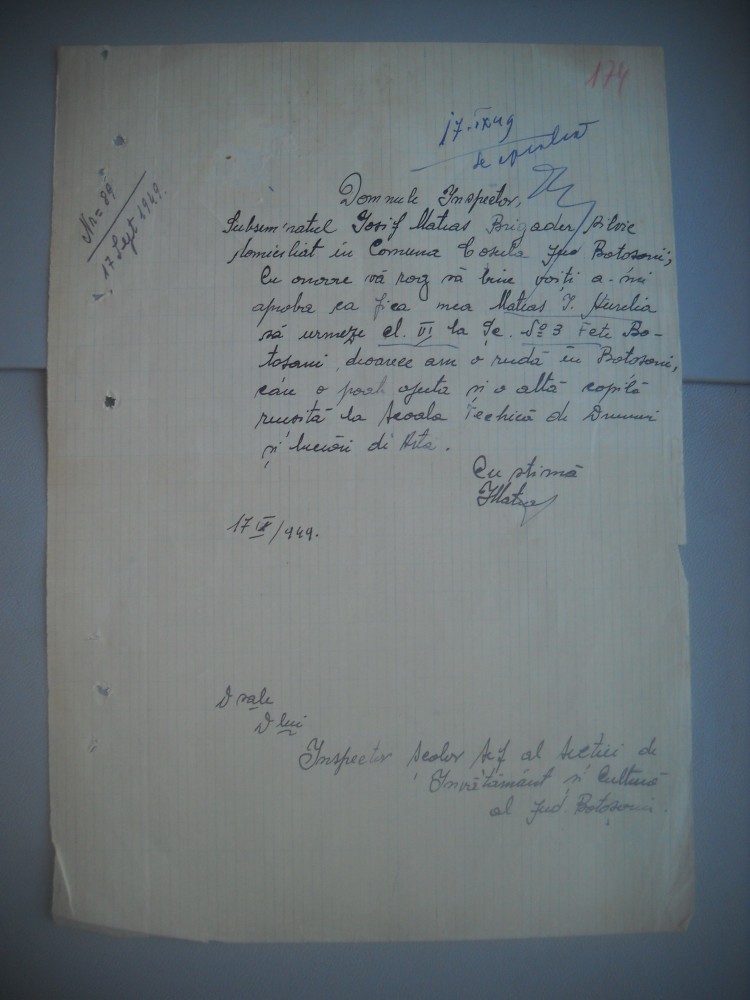 174
17.IX.49
se aprobă
Nr= 89
17 Sept 1949.
Domnule Inspector,
Subsemnatul Iosif Matias Brigader silvic
domiciliat în Comuna Cosula Jud Botosani,
Cu onoare vă rog să bine voiți a-mi
aproba ca fica mea Matias I. Aurelia
să urmeze cl. VI la Șc. No 3 Fete Bo-
toșani, deoarece am o rudă în Botosani,
care o poate ajuta și o altă copilă
reusită la Scoala Technică de Drumuri
și lucrări di Artă.
Cu stimă
IMatias
17 IX/949.
D sale
D lui
Inspector Școlar Șef al Secției de
Invătământ și Cultură
al Jud Botosani.